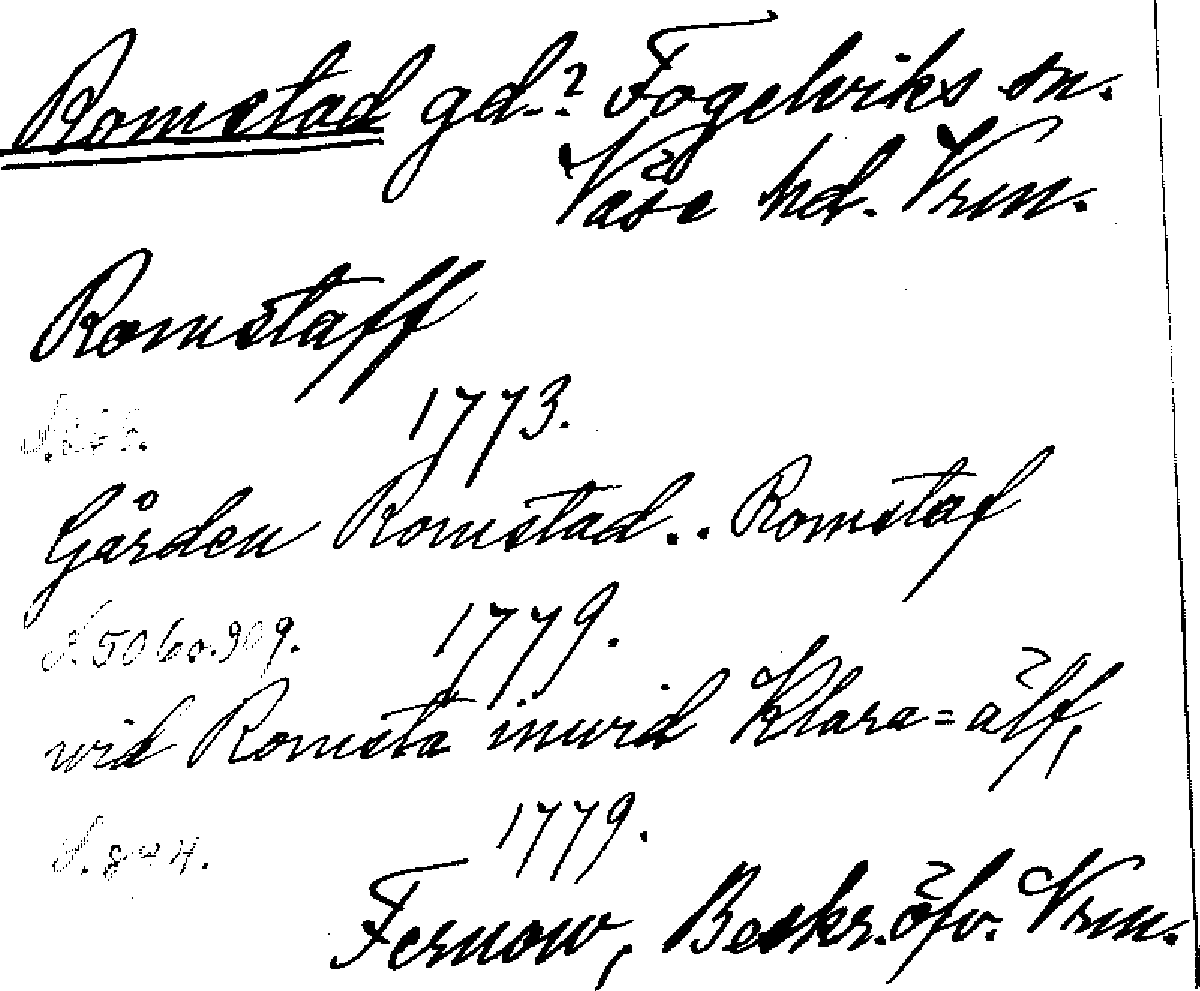 Romstad gd.? Fogelviks sn.
Väse hd. Vrm.
Romstaff
1773.
Gården Romstad.. Romstaf
S. 506 o. 909. 1779.
wid Romsta inwid Klara=älf,
1779.
Fernow, Beskr. öfv. Vrm.